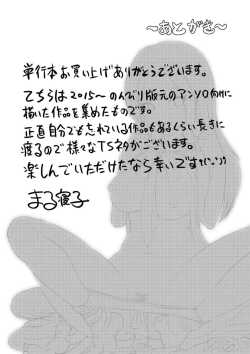 ～あとがき～
単行本お買い上げありがとうございます。
こちらは2015～のんびり版元のアンソロ向けに
描いた作品を集めたものです。
正直自分でも忘れている作品もあるくらい長きに
渡るので様々なTSネタがございます。
楽しんでいただけたなら幸いです
まる寝子